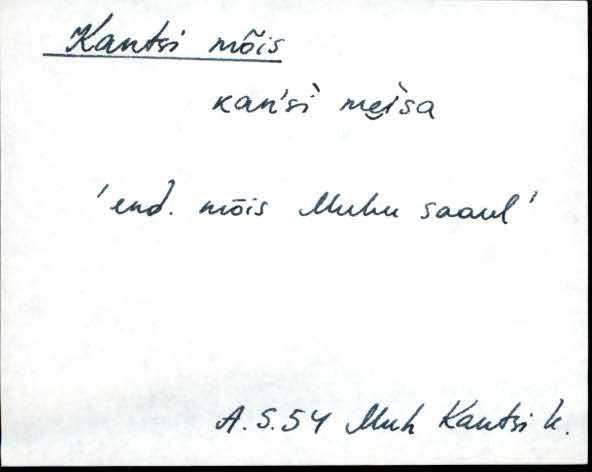 Kantsi mõis
kan'sì̬ mei̬sa
'end. mõis Muhu saarel'
A.S.54 Muh Kantsi k.